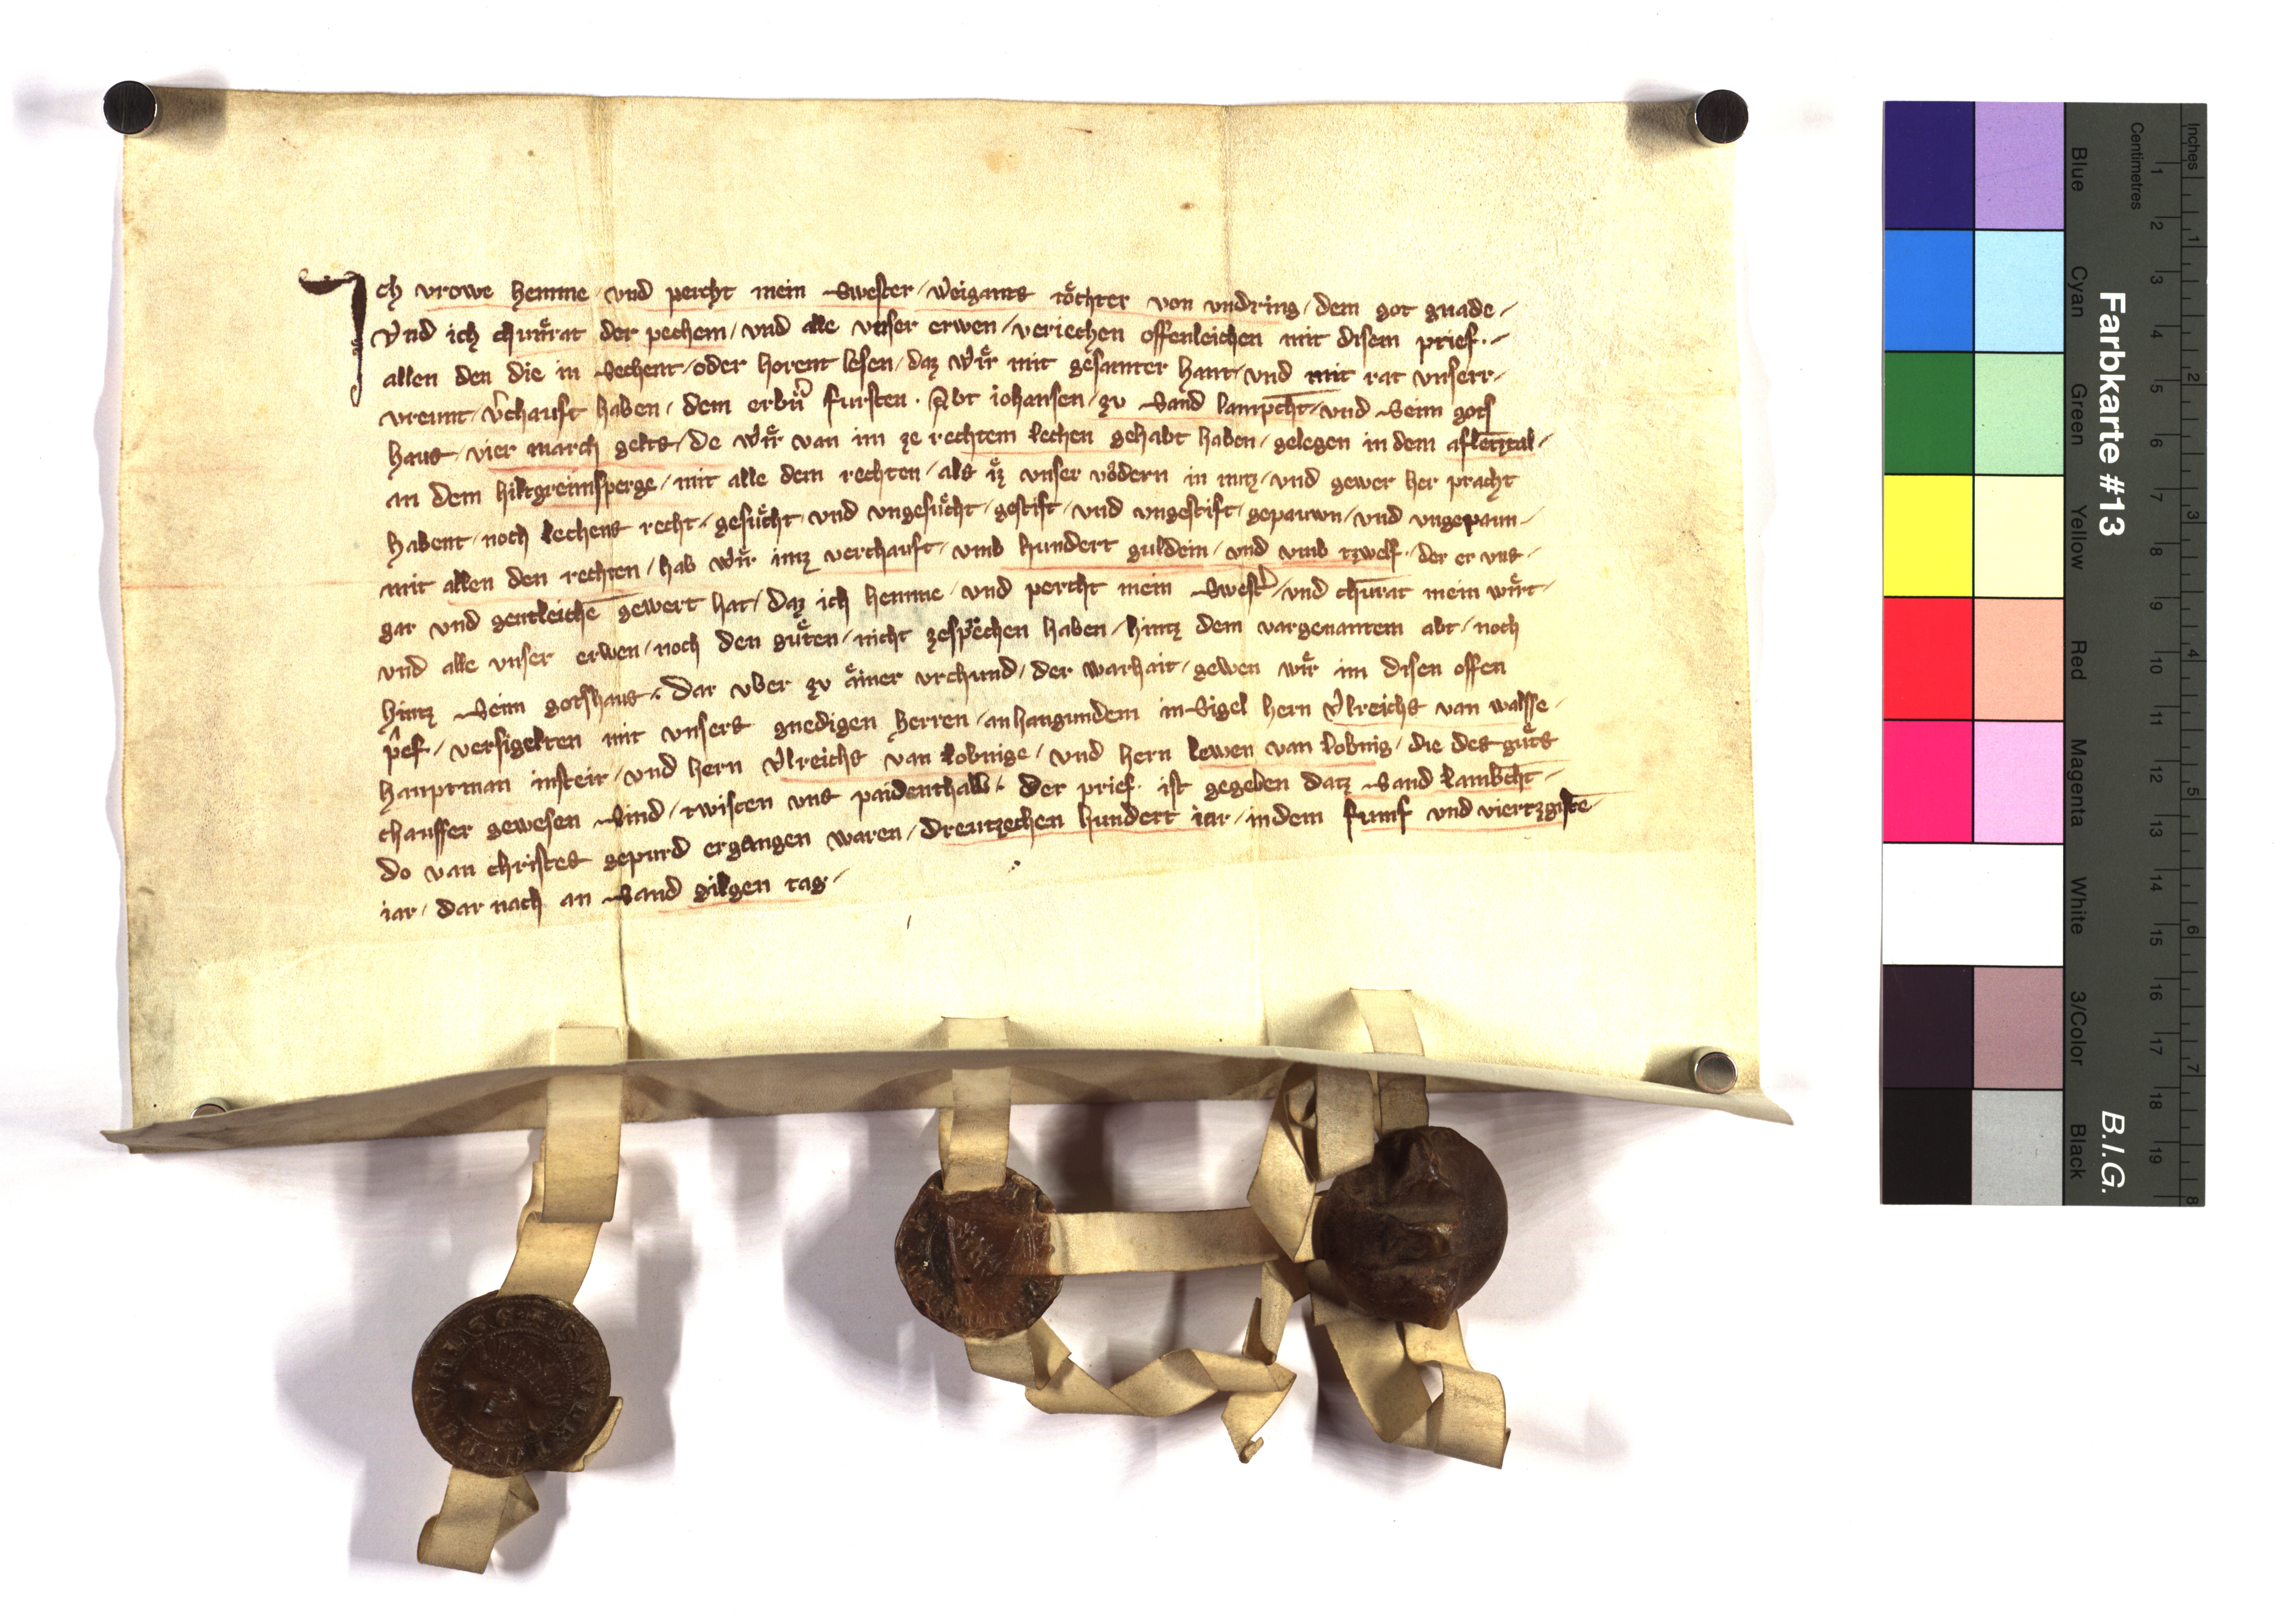 Ich vrowe hemme / vnd percht mein swester / weigants toͤchter von vndring / dem got gnade /
Vnd ich chuͤnrat der pechem / vnd alle vnser erwen / veriechen offenleichen mit disem prief. /
allen den die in sechent / oder horent lesen / daz wiͤr mit gesamter hant / vnd mit rat vnserr /
vreunt / v̓chauft haben / dem erbn̓ fursten . Abt iohansen / zv sand lamp̄cht / vnd seim gots
haus / vier march gelts / de wiͤr van im ze rechtem lechen gehabt haben / gelegen in dem afletztal /
an dem hiltgreimsperge / mit alle dem rechten / als iͤz vnser voͤdern in nutz / vnd gewer her pracht
habent / noch lechens recht / gesuͤcht / vnd vngesuͤcht / gestift / vnd vngestift / gepauwn / vnd vngepaun /
mit allen den rechten / hab wiͤr imz verchauft / vmb hundert guldein / vnd vmb tzwelf / der er vns /
gar vnd gentleichē gewert hat / daz ich hemme / vnd percht mein swest̓ / vnd chūrat mein wiͤrt /
vnd alle vnser erwen / noch den guͤten / nicht zesprechen haben / hintz dem vargenantem abt / noch
hintz seim gotshaus / dar vber zv aͤiner vrchund / der warhait / gewen wiͤr im disen offen
p̂ef / versigelten mit vnsers gnedigen herren / an hangundem insigel hern Vlreichs van walsse /
hauptman insteir / vnd hern Vlreichs van lobnige / vnd hern lewen van lobnig / die des guͤts
chauffer gewesen sind / twisten vns paidenthalb / der prief ist gegeben datz sand lamb̄cht /
do van christes gepurd ergangen waren / dreutzechen hundert iar / in dem funf vnd viertzgistē
iar / dar nach an sand gilgen tag /
Farbkarte #13
B.I.G.
Inches
Centimetres
Blue
Cyan
Green
Yellow
Red
Magenta
White
3/Color
Black
1 2 3 4 5 6 7 8 9 10 11 12 13 14 15 16 17 18 19
1 2 3 4 5 6 7 8